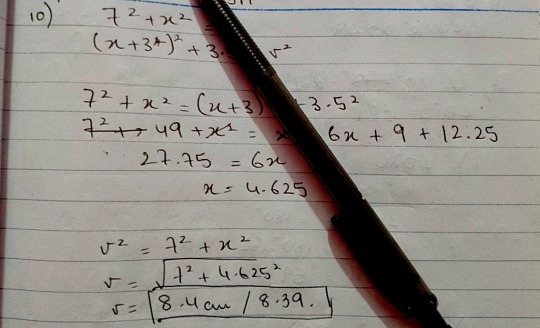 10) 7² + x² =
(x+3)² + 3. r²
7² + x² = (x+3) +3.5²
49 + x² = 6x + 9 + 12.25
27.75 = 6x
x = 4.625
r² = 7² + x²
r = √7² + 4.625²
r = 8.4cm / 8.39.